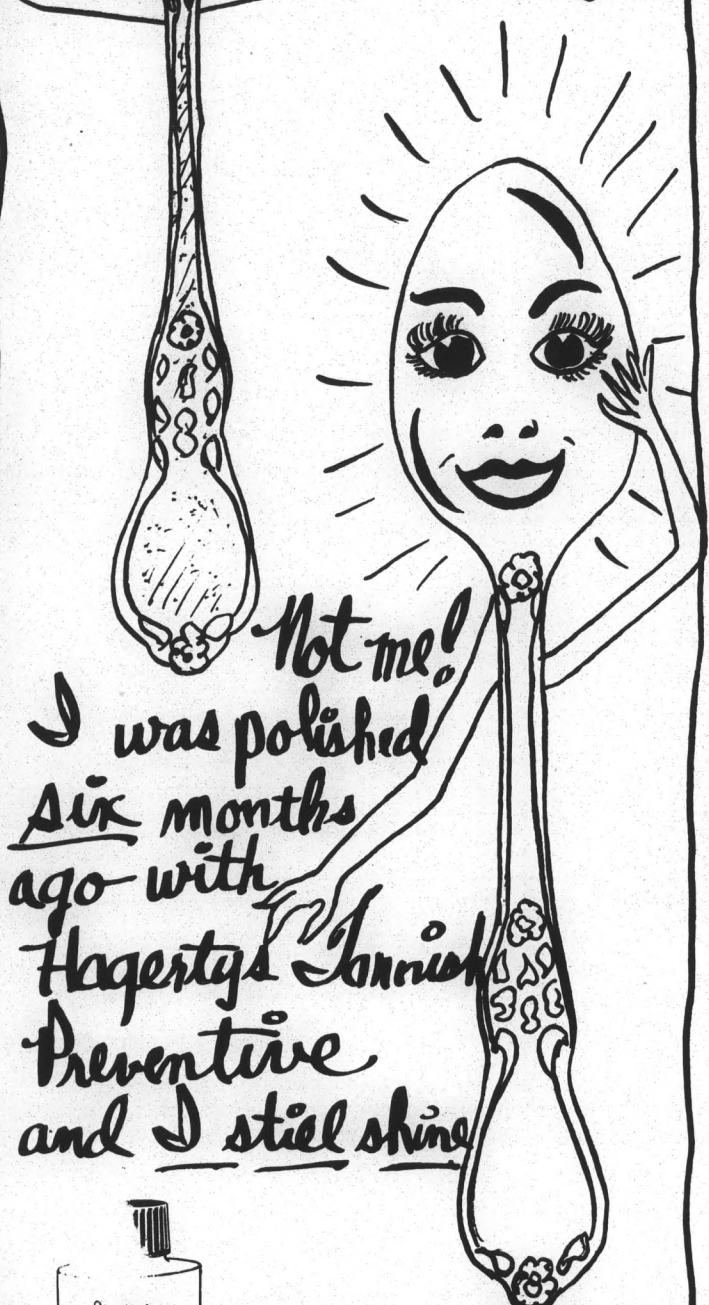 Not me!
I was polished
six months
ago with
Hagertys Tarnish
Preventive
and I still shine